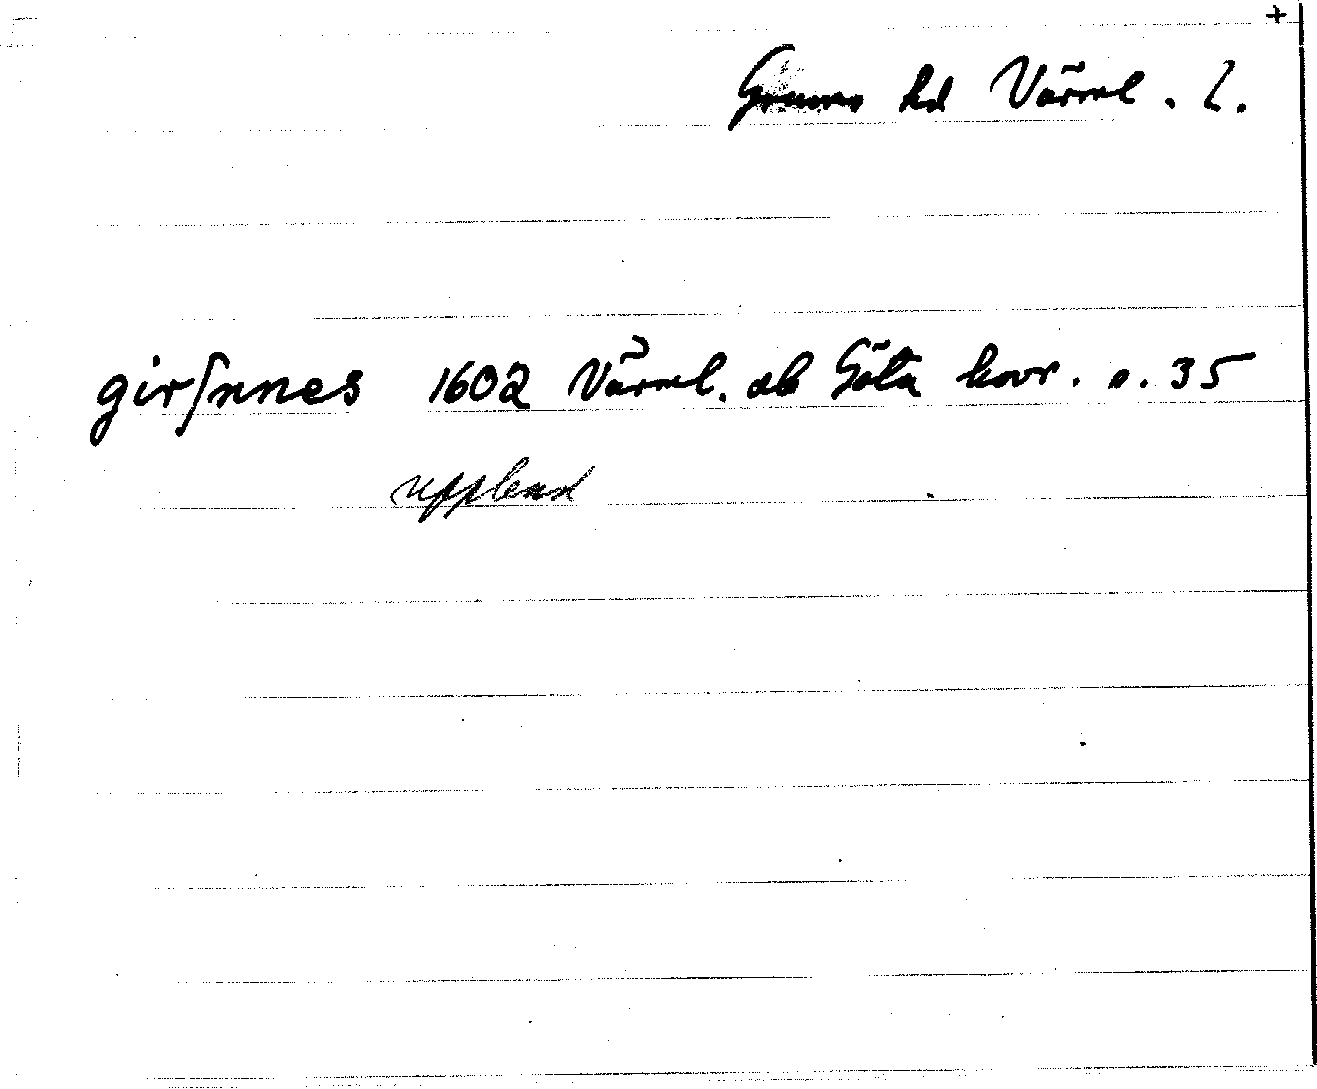 +
Grums hd Värml. l.
girſnnes 1602 Värml. db Göta hovr. s. 35
upplend